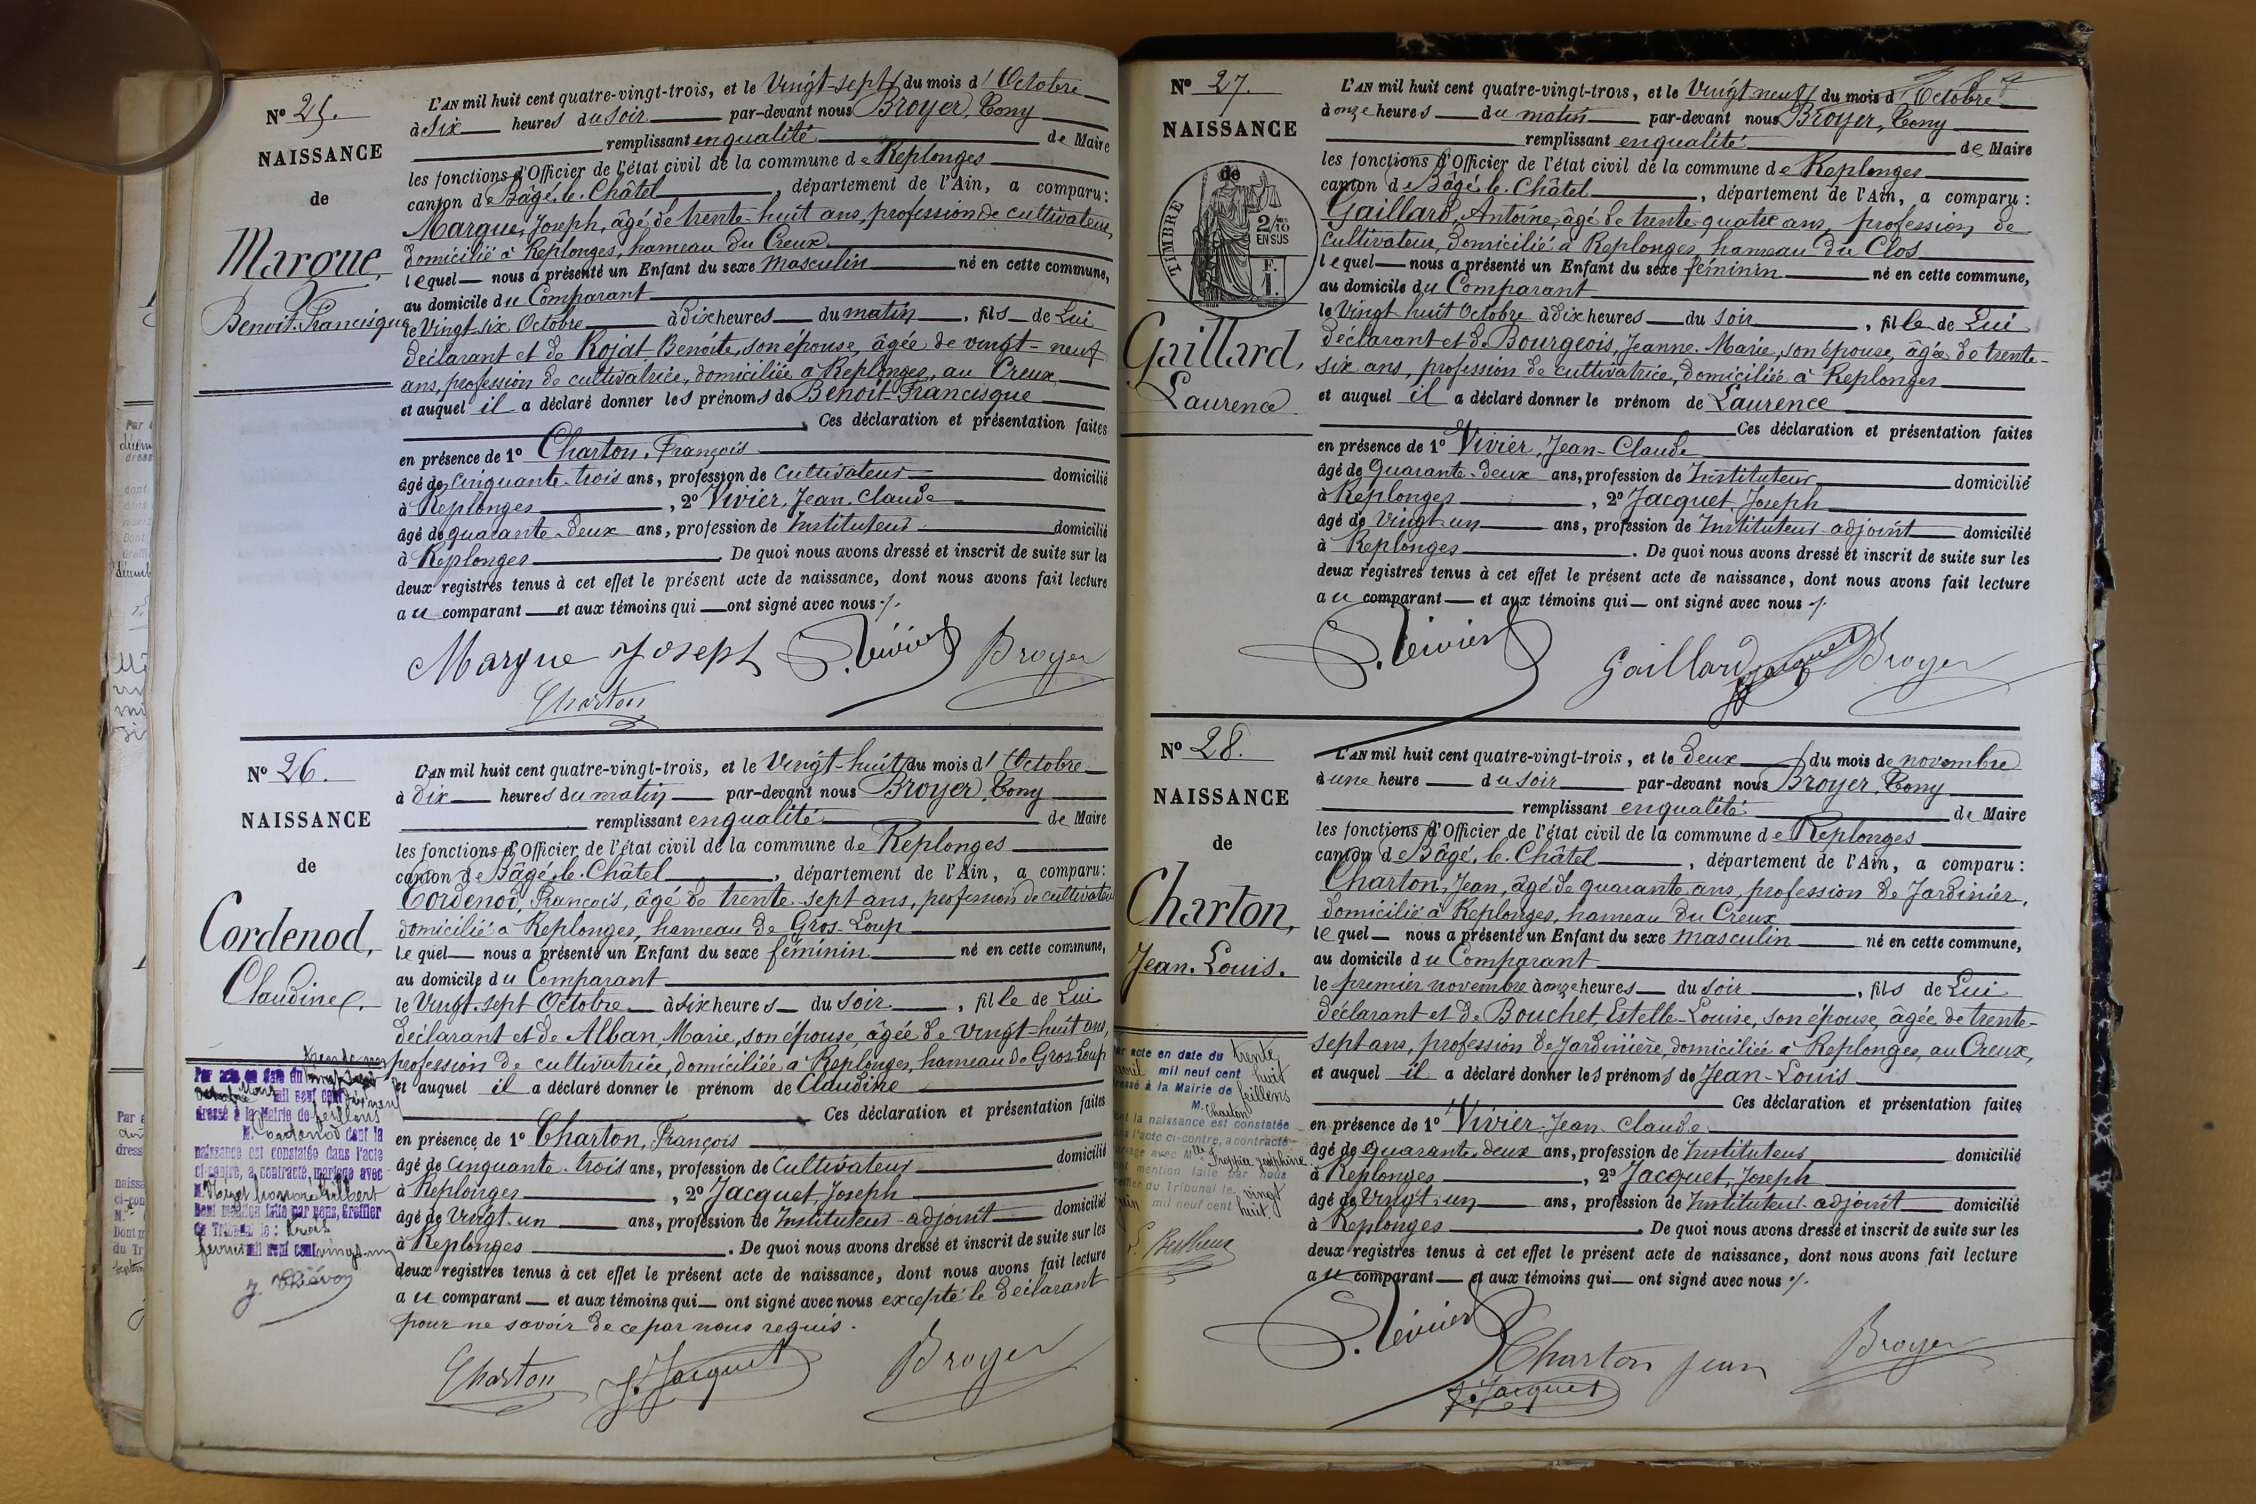 Nº 25.
NAISSANCE
de
Marque,
Benoit-Francisque
L'AN mil huit cent quatre-vingt-trois, et le Vingt-sept du mois d'Octobre
à Six heures du soir par-devant nous Broyer, Tony
remplissant en qualité de Maire
les fonctions d'Officier de l'état civil de la commune de Replonges
canton de Bâgé-le-Châtel, département de l'Ain, a comparu:
Marque, Joseph, âgé de trente-huit ans, profession de cultivateur,
domicilié à Replonges, hameau du Creux
lequel nous a présenté un Enfant du sexe masculin né en cette commune,
au domicile du Comparant
le Vingt-six Octobre à dix heures du matin, fils de Lui
déclarant et de Rojat, Benoite, son épouse, âgée de vingt-neuf
ans, profession de cultivatrice, domiciliée à Replonges, au Creux,
et auquel il a déclaré donner les prénoms de Benoit-Francisque
Ces déclaration et présentation faites
en présence de 1º Charton, François
âgé de cinquante-trois ans, profession de Cultivateur domicilié
à Replonges, 2º Vivier, Jean-Claude
âgé de quarante-deux ans, profession de Instituteur domicilié
à Replonges. De quoi nous avons dressé et inscrit de suite sur les
deux registres tenus à cet effet le présent acte de naissance, dont nous avons fait lecture
au comparant et aux témoins qui ont signé avec nous ./.
Marque Joseph Vivier Broyer
Charton
Nº 26.
NAISSANCE
de
Cordenod,
Claudine.
L'AN mil huit cent quatre-vingt-trois, et le Vingt-huit du mois d'Octobre
à Dix heures du matin par-devant nous Broyer, Tony
remplissant en qualité de Maire
les fonctions d'Officier de l'état civil de la commune de Replonges
canton de Bâgé-le-Châtel, département de l'Ain, a comparu:
Cordenod, François, âgé de trente-sept ans, profession de cultivateur
domicilié à Replonges, hameau de Gros-Loup
lequel nous a présenté un Enfant du sexe féminin né en cette commune,
au domicile du Comparant
le Vingt-sept Octobre à six heures du soir, fille de Lui
déclarant et de Alban, Marie, son épouse, âgée de vingt-huit ans,
profession de cultivatrice, domiciliée à Replonges, hameau de Gros Loup
et auquel il a déclaré donner le prénom de Claudine
Ces déclaration et présentation faites
en présence de 1º Charton, François
âgé de cinquante-trois ans, profession de Cultivateur domicilié
à Replonges, 2º Jacquet, Joseph
âgé de Vingt-un ans, profession de Instituteur-adjoint domicilié
à Replonges. De quoi nous avons dressé et inscrit de suite sur les
deux registres tenus à cet effet le présent acte de naissance, dont nous avons fait lecture
au comparant et aux témoins qui ont signé avec nous excepté le déclarant
pour ne savoir de ce par nous requis.
Charton J. Jacquet Broyer
Par acte en date du
mil neuf cent
dressé à la Mairie de feillens
M. Cordenod dont la
naissance est constatée dans l'acte
ci-contre, a contracté mariage avec
M. honoré Gilbert
Dont mention faite par nous, Greffier
du Tribunal le: trois
février mil neuf cent vingt-un
Nº 27.
NAISSANCE
de
TIMBRE
2/10
EN SUS
F.
1.
Gaillard,
Laurence
L'AN mil huit cent quatre-vingt-trois, et le Vingt neuf du mois d'Octobre
à onze heures du matin par-devant nous Broyer, Tony
remplissant en qualité de Maire
les fonctions d'Officier de l'état civil de la commune de Replonges
canton de Bâgé-le-Châtel, département de l'Ain, a comparu:
Gaillard, Antoine, âgé de trente-quatre ans, profession de
cultivateur, domicilié à Replonges, hameau du Clos
lequel nous a présenté un Enfant du sexe féminin né en cette commune,
au domicile du Comparant
le Vingt huit Octobre à dix heures du soir, fille de Lui
déclarant et de Bourgeois, Jeanne-Marie, son épouse, âgée de trente-
six ans, profession de cultivatrice, domiciliée à Replonges
et auquel il a déclaré donner le prénom de Laurence
Ces déclaration et présentation faites
en présence de 1º Vivier, Jean-Claude
âgé de Quarante-deux ans, profession de Instituteur domicilié
à Replonges, 2º Jacquet, Joseph
âgé de Vingt-un ans, profession de Instituteur-adjoint domicilié
à Replonges. De quoi nous avons dressé et inscrit de suite sur les
deux registres tenus à cet effet le présent acte de naissance, dont nous avons fait lecture
au comparant et aux témoins qui ont signé avec nous ./.
Vivier Gaillard Jacquet Broyer
Nº 28.
NAISSANCE
de
Charton,
Jean-Louis.
L'AN mil huit cent quatre-vingt-trois, et le deux du mois de novembre
à une heure du soir par-devant nous Broyer, Tony
remplissant en qualité de Maire
les fonctions d'Officier de l'état civil de la commune de Replonges
canton de Bâgé-le-Châtel, département de l'Ain, a comparu:
Charton, Jean, âgé de quarante ans, profession de Jardinier,
domicilié à Replonges, hameau du Creux
lequel nous a présenté un Enfant du sexe masculin né en cette commune,
au domicile du Comparant
le premier novembre à onze heures du soir, fils de Lui
déclarant et de Bouchet, Estelle-Louise, son épouse, âgée de trente-
sept ans, profession de Jardinière, domiciliée à Replonges, au Creux,
et auquel il a déclaré donner les prénoms de Jean-Louis
Ces déclaration et présentation faites
en présence de 1º Vivier, Jean-Claude
âgé de quarante-deux ans, profession de Instituteur domicilié
à Replonges, 2º Jacquet, Joseph
âgé de Vingt-un ans, profession de Instituteur-adjoint domicilié
à Replonges. De quoi nous avons dressé et inscrit de suite sur les
deux registres tenus à cet effet le présent acte de naissance, dont nous avons fait lecture
au comparant et aux témoins qui ont signé avec nous ./.
Vivier Charton Jean Broyer
J. Jacquet
acte en date du trente
avril mil neuf cent huit
dressé à la Mairie de feillens
M. Charton
la naissance est constatée
l'acte ci-contre, a contracté
avec Mlle Joséphine
mention faite par nous
du Tribunal le vingt
juin mil neuf cent huit.